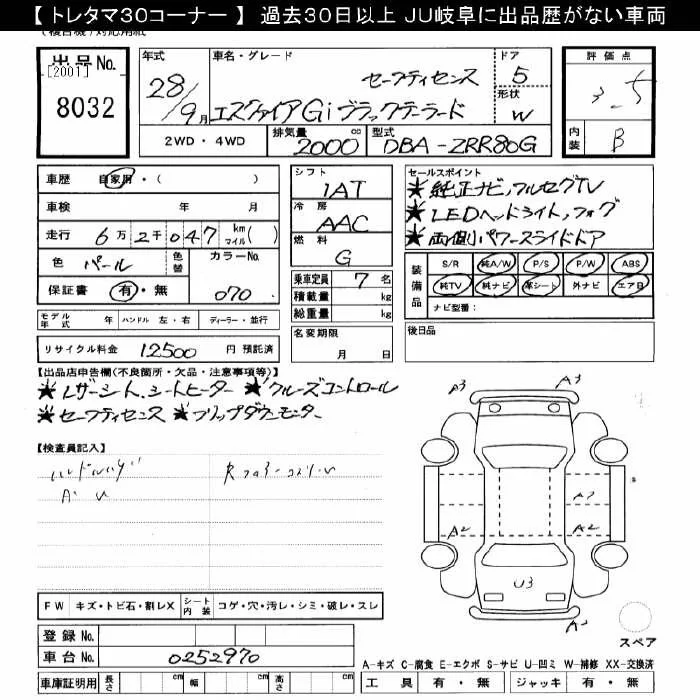 【 トレタマ30コーナー 】 過去30日以上 JU岐阜に出品歴がない車両
出品No.
[2001]
8032
年式 28/9月
車名・グレード セーフティセンス
エスクァイア Gi ブラックテーラード
ドア 5
形状 W
評価点 3.5
内装 B
2WD・4WD
排気量 2000 cc
型式 DBA-ZRR80G
車歴 自家用・( )
車検 年 月
走行 6万2千047 km マイル( )
色 パール 色替 カラーNo. 070
保証書 有・無
シフト 1AT
冷房 AAC
燃料 G
乗車定員 7名
積載量 kg
総重量 kg
セールスポイント
★純正ナビ,フルセグTV
★LEDヘッドライト,フォグ
★両側パワースライドドア
装備品 S/R 純A/W P/S P/W ABS
純TV 純ナビ 革シート 外ナビ エアB
ナビ型番:
モデル年式 年 ハンドル 左・右 ディーラー・並行
リサイクル料金 12500 円 預託済
名変期限 月 日
後日品
【出品店申告欄(不良箇所・欠品・注意事項等)】
★レザーシート,シートヒーター ★クルーズコントロール
★セーフティセンス ★フリップダウンモニター
【検査員記入】
A3
A3
A2
A2
A2
U3
FW キズ・トビ石・割レX シート内装 コゲ・穴・汚レ・シミ・破レ・スレ
スペア
登録No.
車台No. 0252970
A-キズ C-腐食 E-エクボ S-サビ U-凹ミ W-補修 XX-交換済
車庫証明用 長さ cm 幅 cm 高さ cm
工具 有・無 ジャッキ 有・無